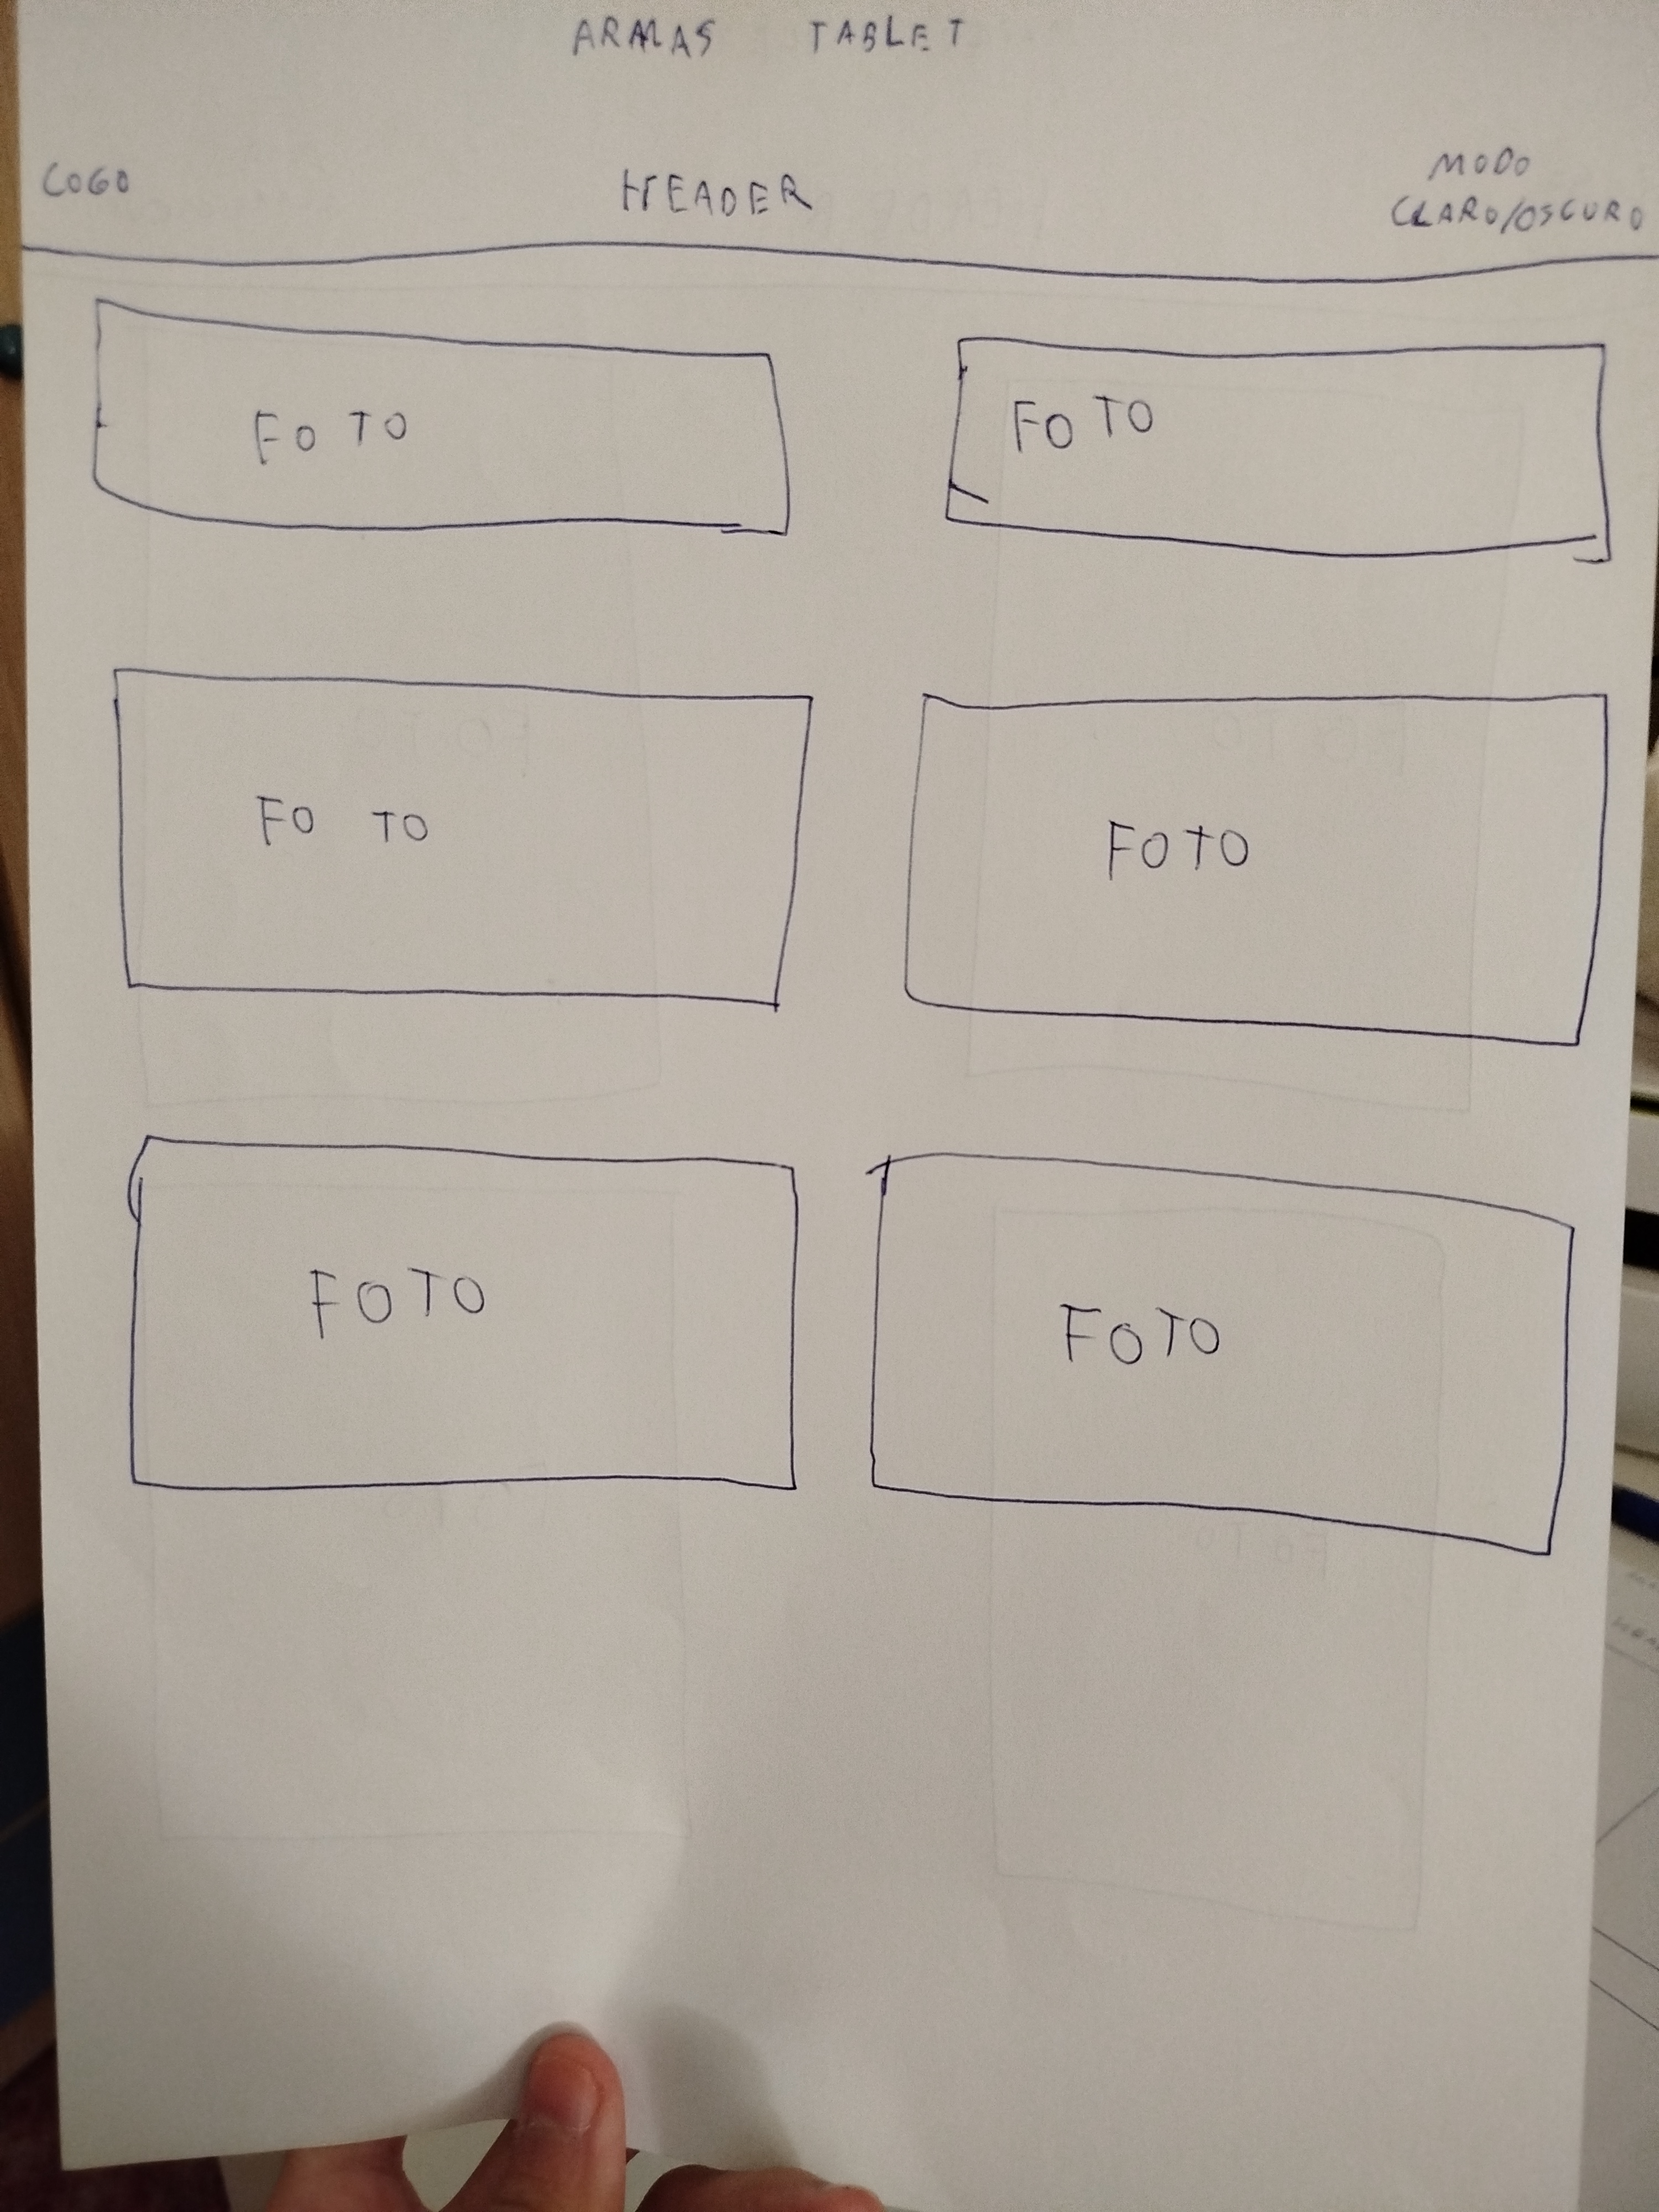 ARMAS TABLET
LOGO
HEADER
MODO
CLARO/OSCURO
FOTO
FOTO
FOTO
FOTO
FOTO
FOTO